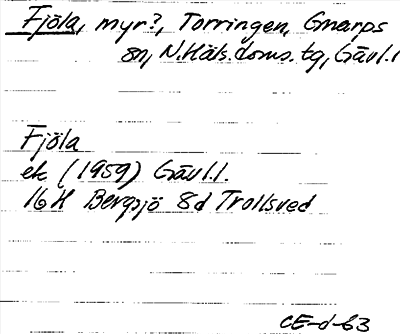 Fjöla, myr?, Torringen, Gnarps
sn, N.Häls.doms.tg, Gävl.l
Fjöla
ek (1959) Gävl.l.
16H Bergsjö 8d Trollsved
CE-d-63